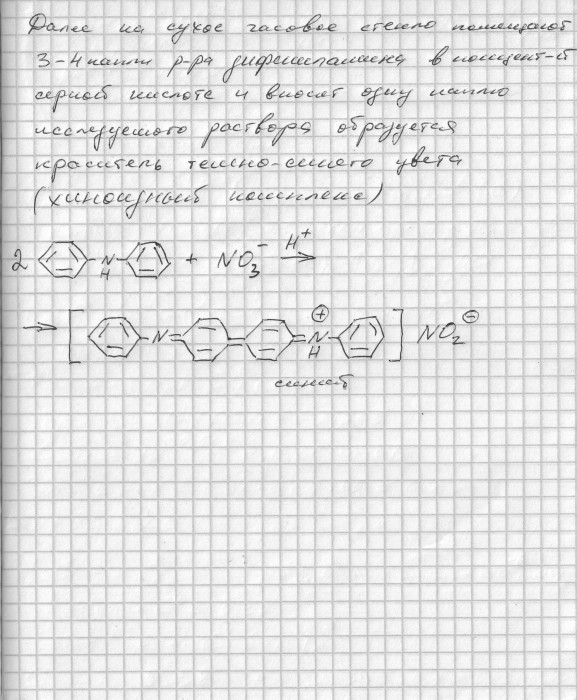 Далее на сухое часовое стекло помещают
3-4 капли р-ра дифениламина в концент-й
серной кислоте и вносят одну каплю
исследуемого раствора образуется
краситель темно-синего цвета
(хиноидный комплекс)
2 N H + NO3- H+
[ N N H + ] NO2 -
синий